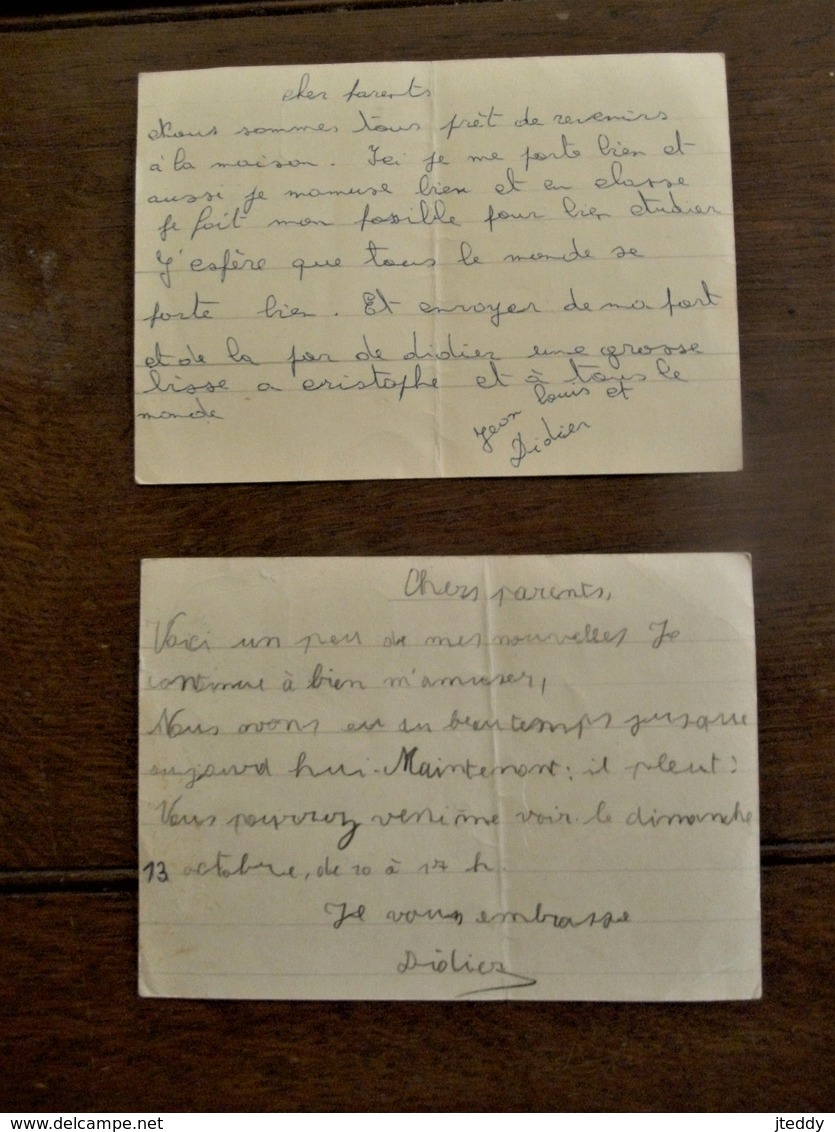 cher parents
Nous sommes tous prêt de revenirs
à la maison. Ici je me porte bien et
aussi je mamuse bien et en classe
je fait mon possible pour bien etudier
J'espère que tous le monde se
porte bien. Et envoyer de ma part
et de la par de didier une grosse
bisse a cristophe et à tous le
monde
Jean louis et
Didier
Chers parents,
Voici un peu de mes nouvelles Je
continue à bien m'amuser,
Nous avons eu du beau temps jusque
aujourd hui. Maintenant; il pleut:
Vous pourrez venir me voir le dimanche
13 octobre, de 10 à 17 h.
Je vous embrasse
Didier
delcampe.net
jteddy